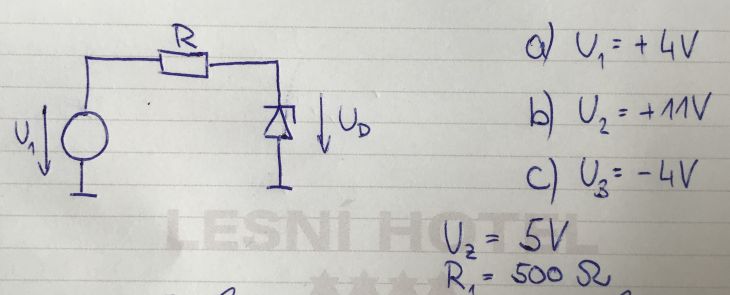 R
a) U₁ = + 4V
U₁
U_D
b) U₂ = + 11V
c) U₃ = - 4V
LESNÍ HOTEL
U_z = 5V
R₁ = 500 Ω